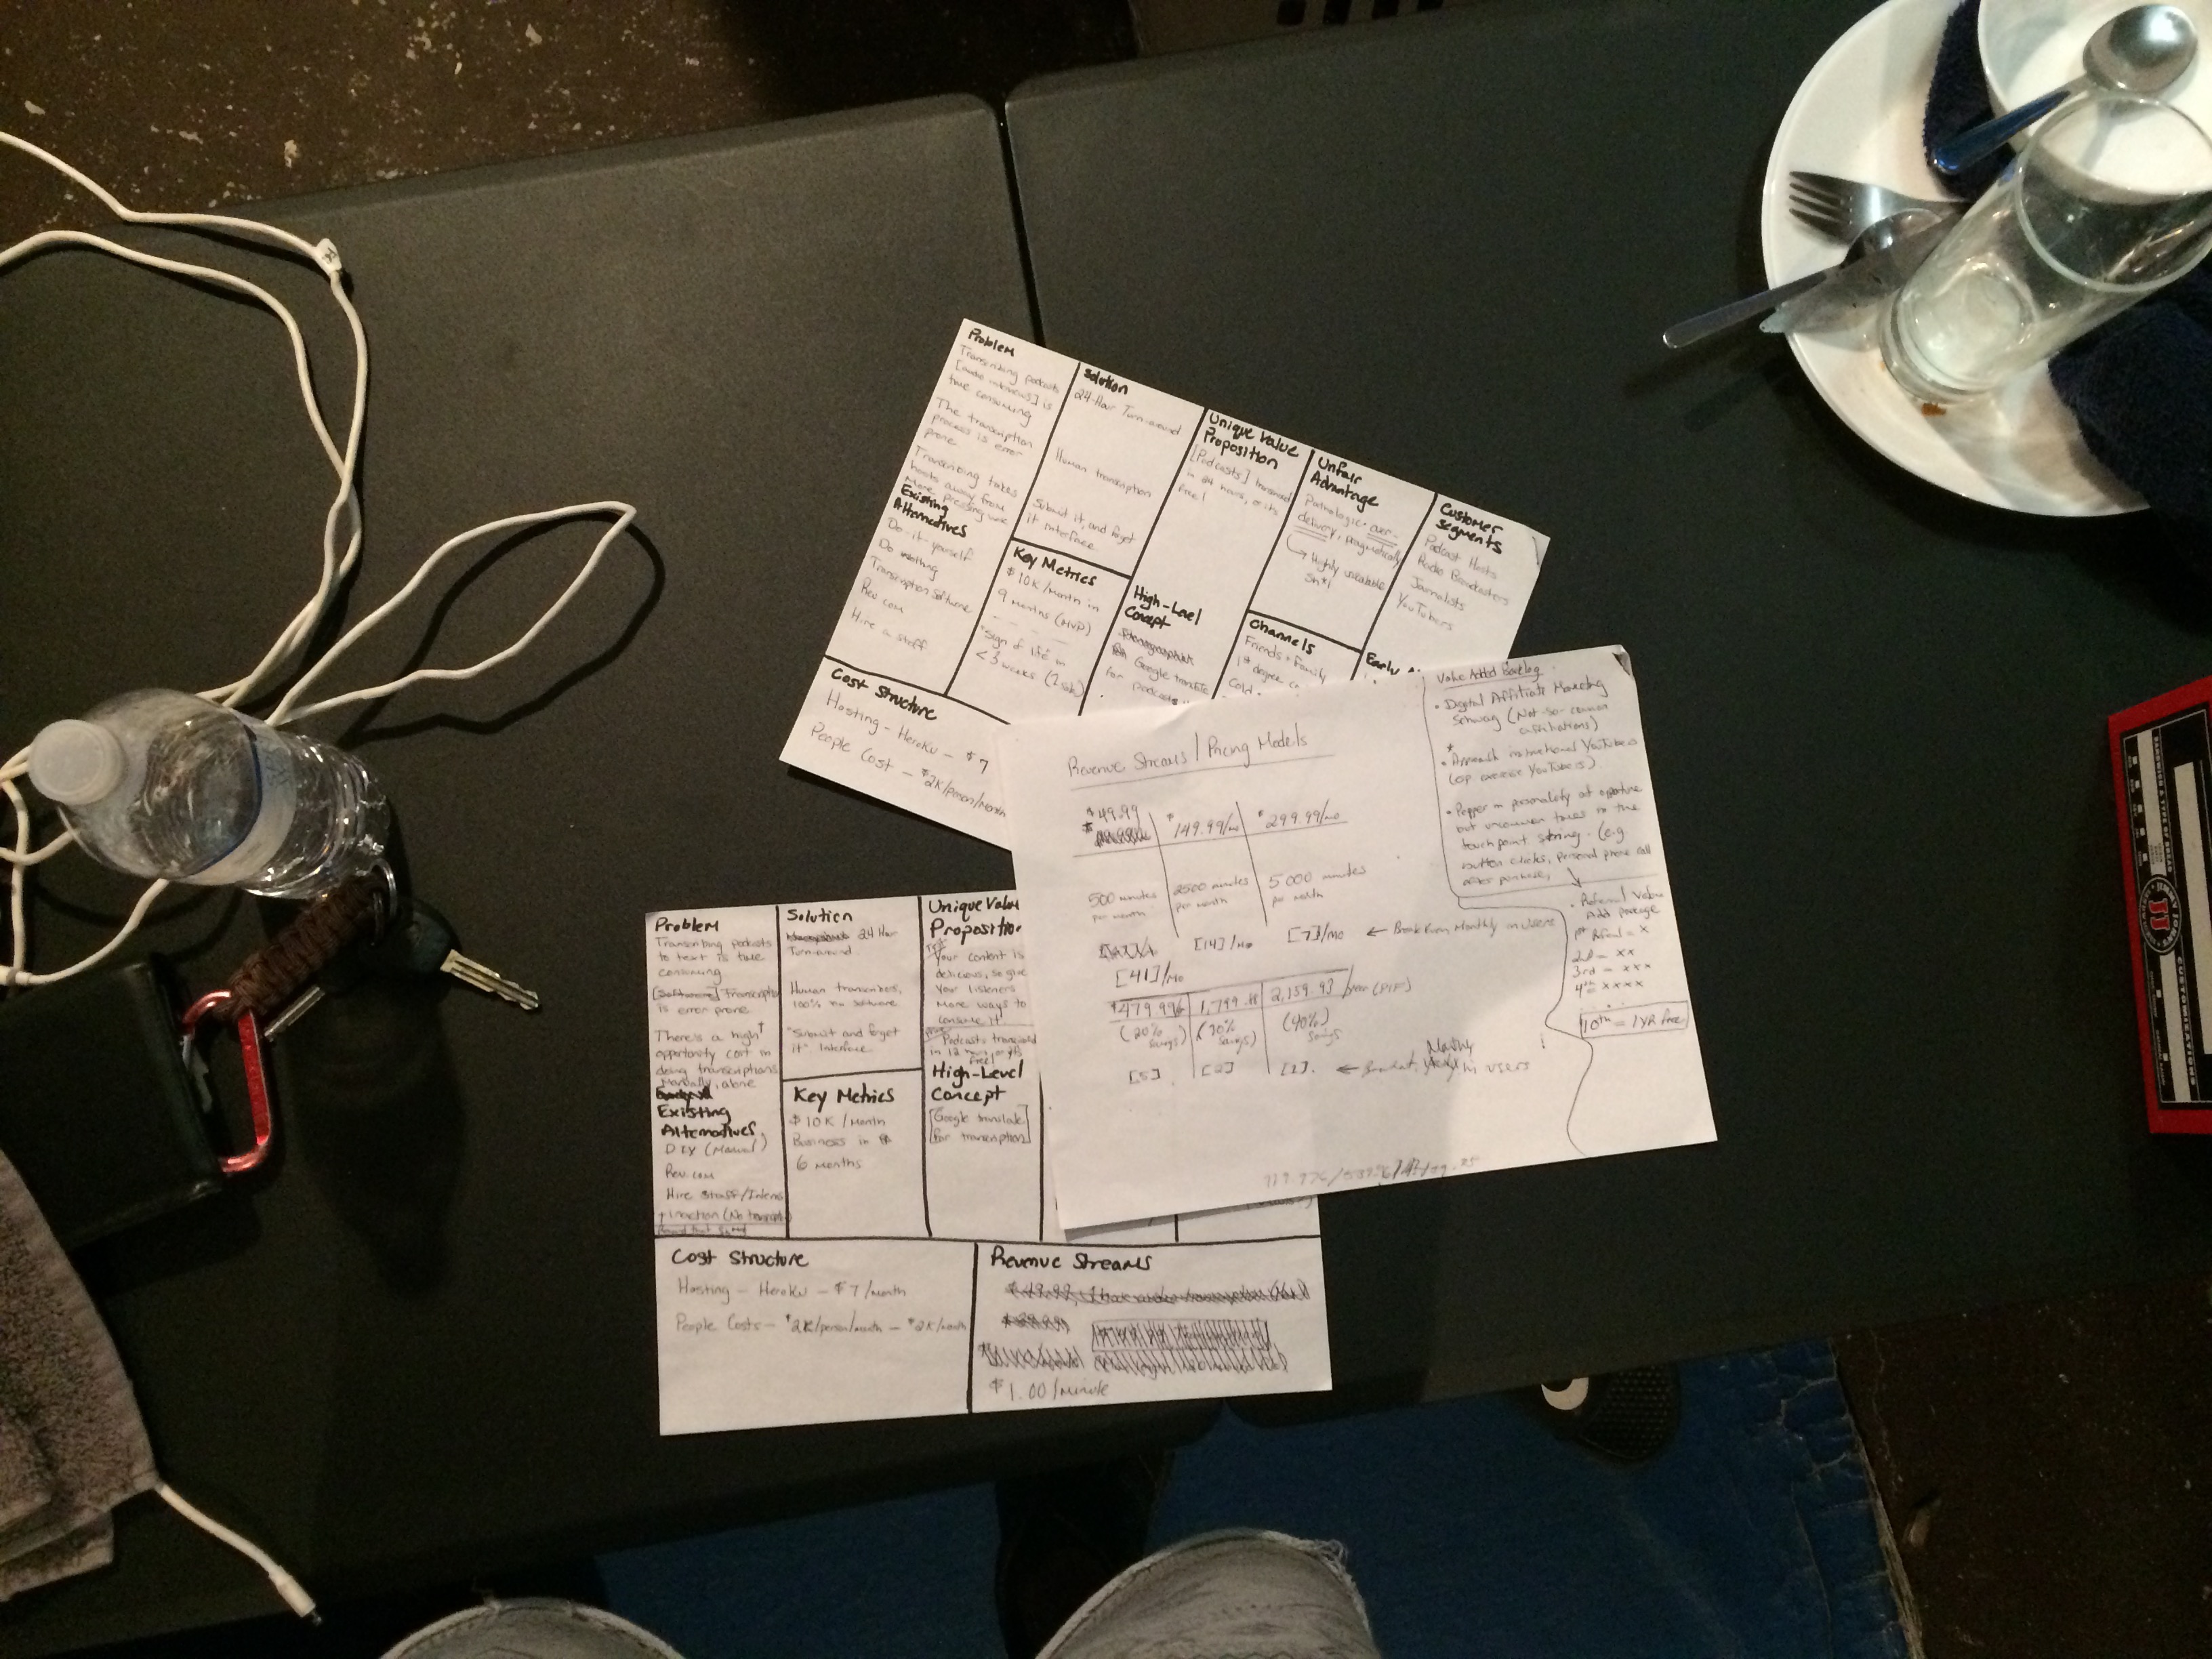 Problem
Transcribing podcasts
[audio interviews] is
time consuming
The transcription
process is error
prone
Transcribing takes
hosts away from
more pressing work
Existing
Alternatives
Do-it-yourself
Do nothing
Transcription Software
Rev.com
Hire a staff
Solution
24-Hour Turn-around
Human transcription
Submit it, and forget
it interface
Key Metrics
$10K/month in
9 months (MVP)
"Sign of life" in
<3 weeks
Unique Value
Proposition
[Podcasts] transcribed
in 24 hours, or its
free!
High-Level
Concept
Google translate
for podcasts
Unfair
Advantage
Pathologic over-
delivery, pragmatically
Highly scalable
Sh*t
Channels
Friends + Family
1st degree
Cold
Customer
Segments
Podcast Hosts
Radio Broadcasters
Journalists
YouTubers
Early
Cost Structure
Hosting - Heroku - $7
People Cost - $2K/person/month
Revenue Streams / Pricing Models
$49.99
$149.99/mo
$299.99/mo
500 minutes
per month
2500 minutes
per month
5000 minutes
per month
[41]/mo
[14]/mo
[7]/mo
← Break Even Monthly in Users
$479.99
1,799.88
2,159.93
/year (PIF)
(20%
savings)
(30%
savings)
(40%)
savings
[5]
[2]
[1]
← Monthly
in users
Value Added Backlog
• Digital Affiliate Marketing
Schwag (Not-so-common
affiliations)
• Approach instructional YouTubers
(esp. exercise YouTubers)
• Pepper in personality at opportune
but uncommon times in the
touchpoint string - (e.g.
button clicks, personal phone call
after purchase,
• Referral Value
Add package
1st Referral = x
2nd = xx
3rd = xxx
4th = xxxx
10th = 1 YR free
Problem
Transcribing podcasts
to text is time
consuming
Transcription
is error prone
There's a high
opportunity cost in
doing transcriptions
Manually, alone
Existing
Alternatives
DIY (Manual)
Rev.com
Hire Staff/Interns
Inaction (No transcript)
Solution
24 Hour
Turn-around
Human transcribers,
100% no software
"Submit and forget
it" Interface
Key Metrics
$10K/Month
Business in
6 months
Unique Value
Proposition
Your content is
delicious, so give
your listeners
more ways to
consume it
Podcasts transcribed
in 12 hours, or it's
free!
High-Level
Concept
[Google translate
for transcription]
Cost Structure
Hosting - Heroku - $7/month
People Costs - $2K/person/month - $2K/month
Revenue Streams
$1.00/minute
JIMMY JOHN'S
CUSTOMIZATIONS